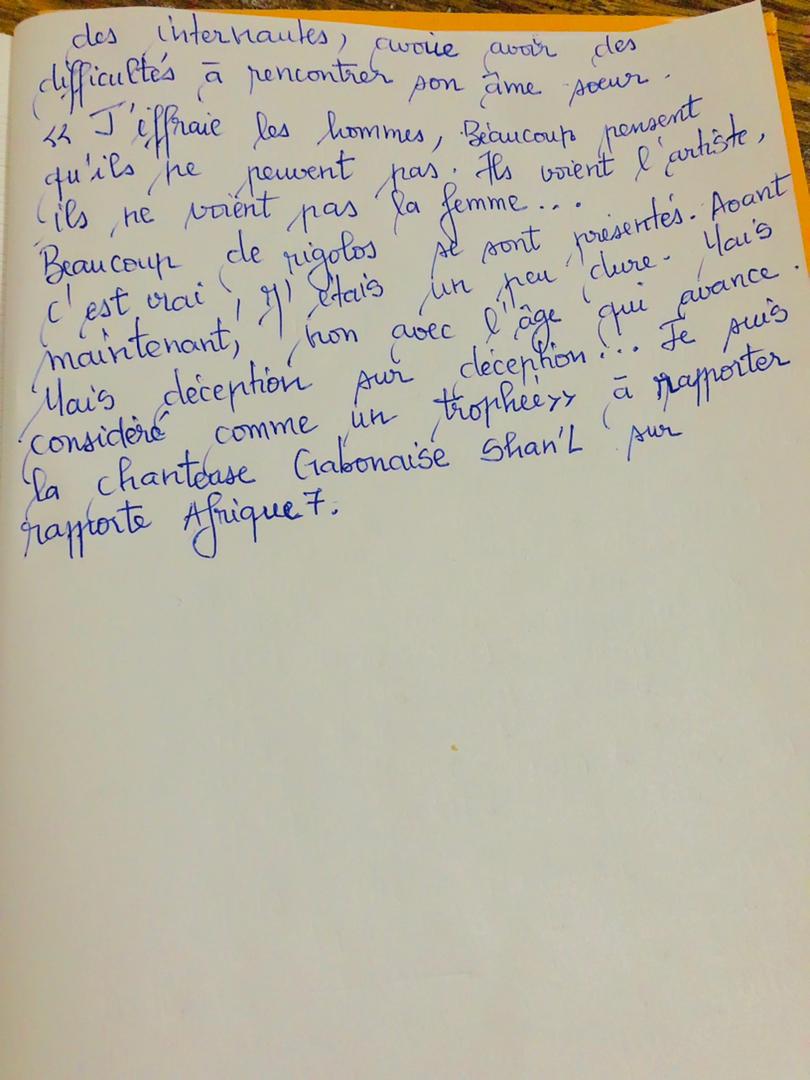 des internautes, avoue avoir des
difficultés à rencontrer son âme soeur.
<< J'effraie les hommes, Beaucoup pensent
qu'ils ne peuvent pas. Ils voient l'artiste,
ils ne voient pas la femme...
Beaucoup de rigolos se sont présentés. Avant
c'est vrai, j'étais un peu dure. Mais
maintenant, non avec l'âge qui avance.
Mais déception sur déception... Je suis
considéré comme un trophée>> à rapporter
la chanteuse Gabonaise Shan'L sur
rapporte Afrique 7.